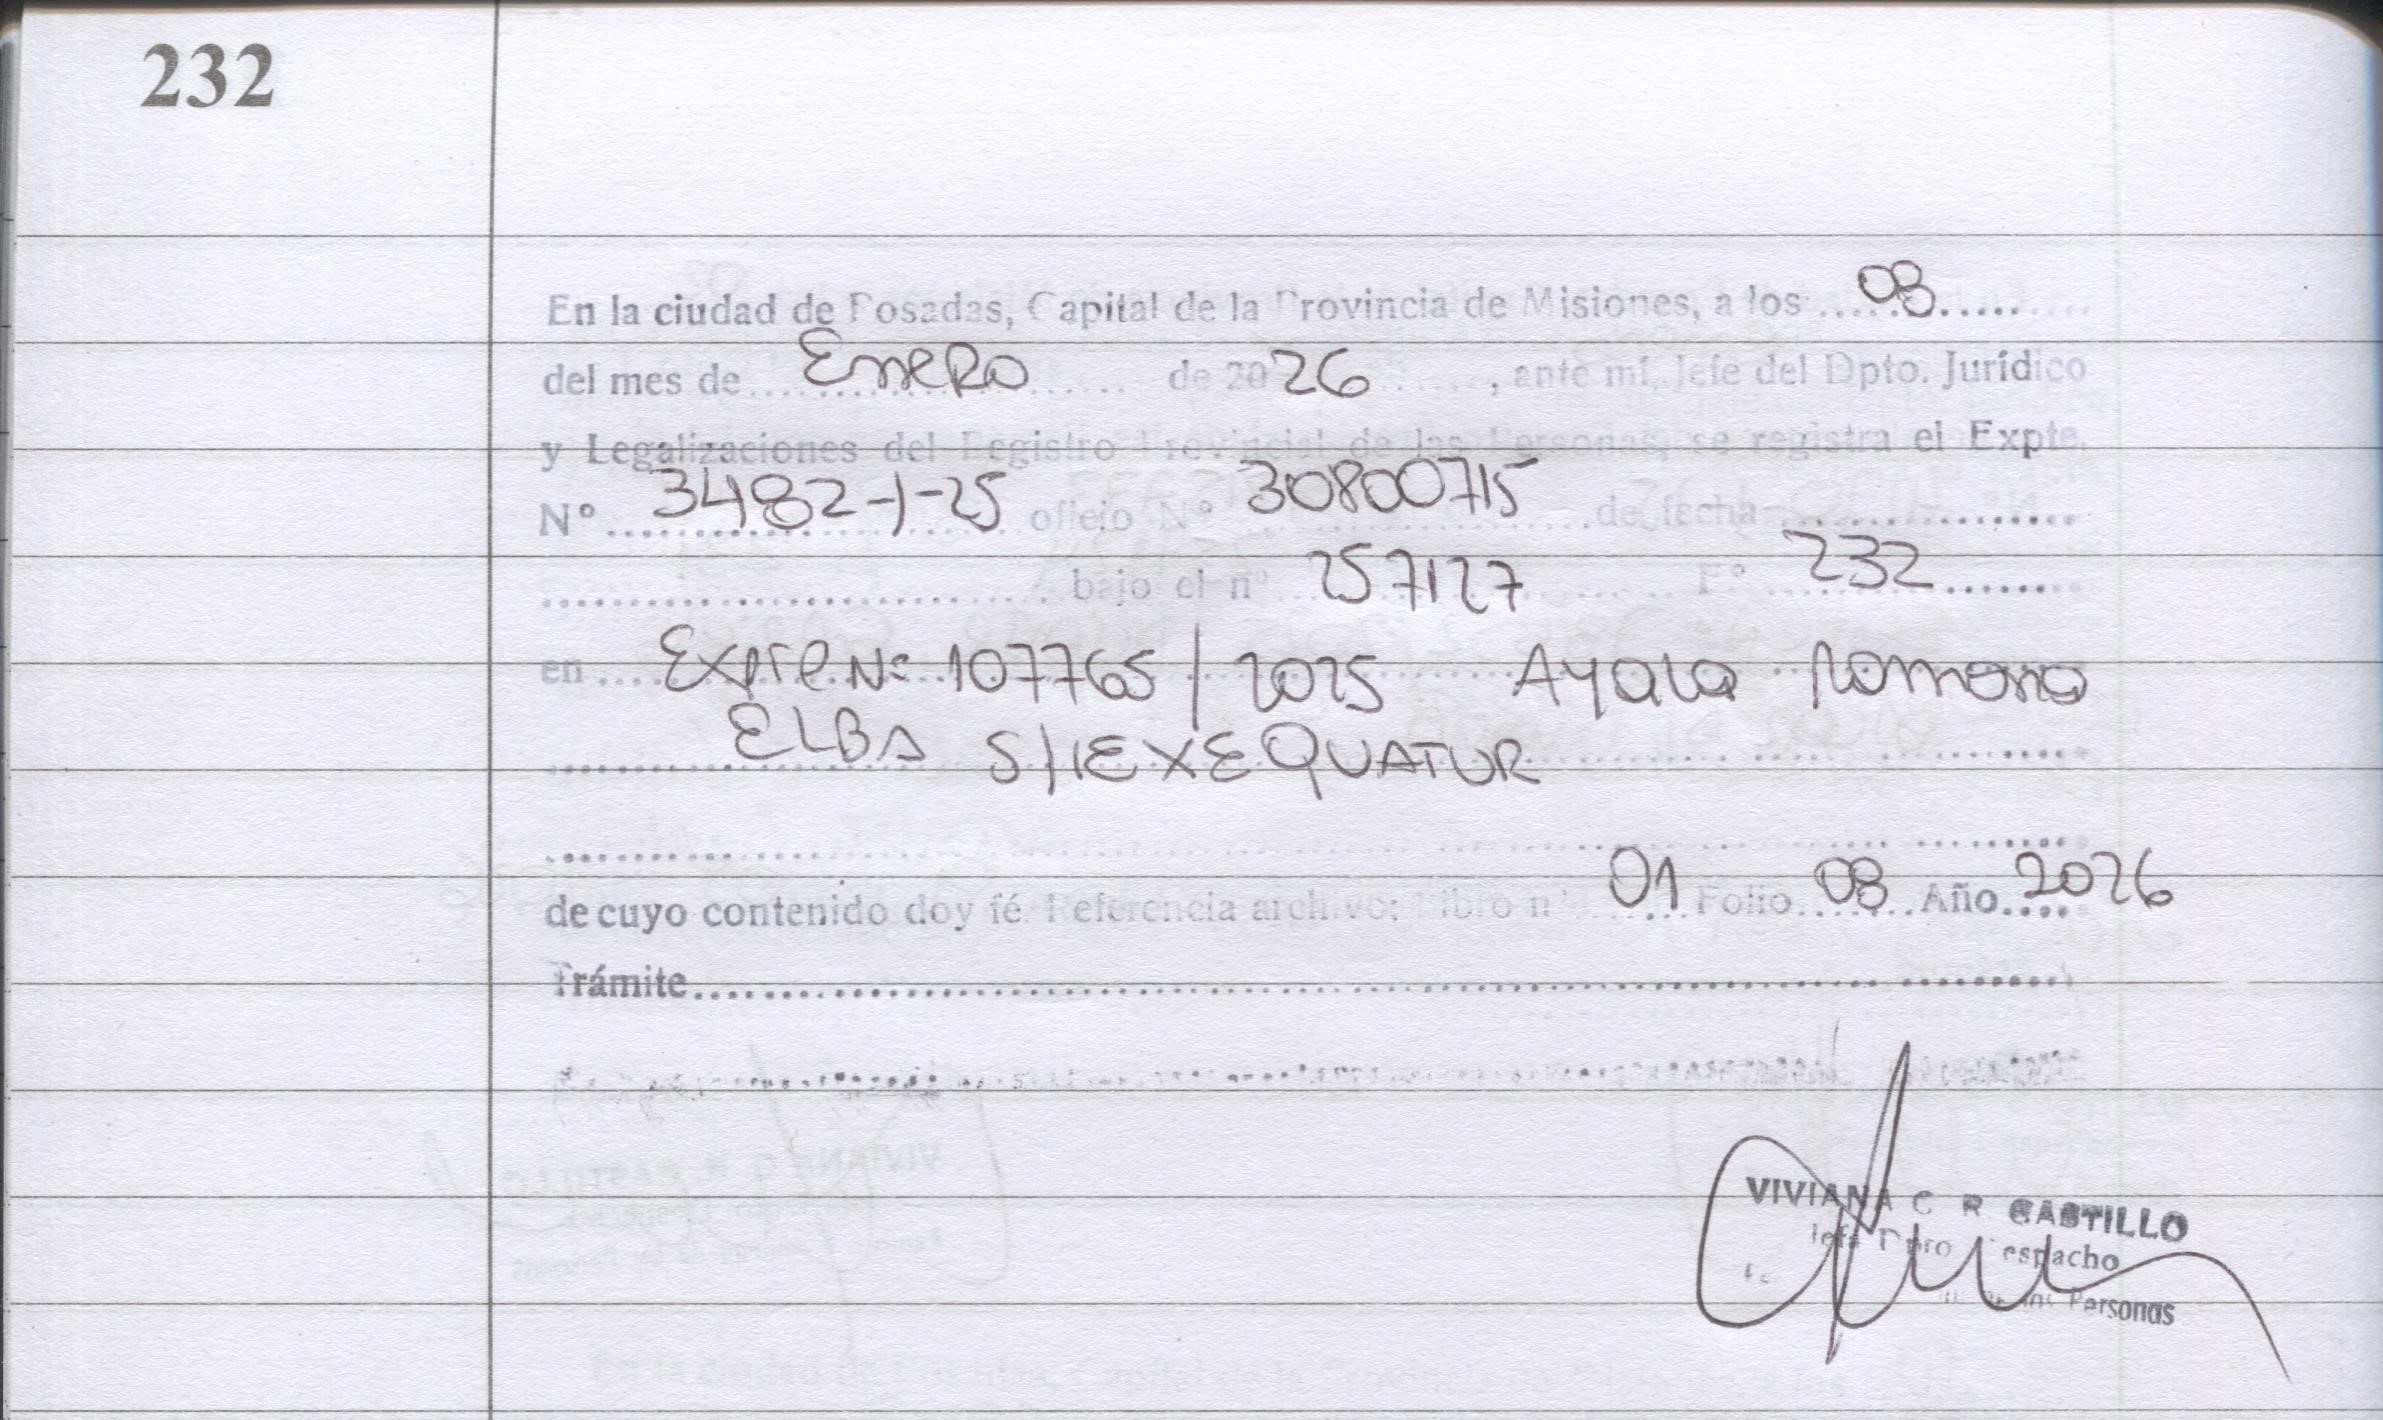 232
En la ciudad de Posadas, Capital de la Provincia de Misiones, a los 08
del mes de Enero de 2026, ante mí, Jefe del Dpto. Jurídico
y Legalizaciones del Registro Provincial de las Personas, se registra el Expte.
Nº 3482-1-25 oficio Nº 30800715 de fecha
bajo el nº 257127 Fº 232
en Expte Nº 107765/2025 Ayala Ramona
ELBA S/ EXEQUATUR
de cuyo contenido doy fé. Referencia archivo: Libro nº 01 Folio 08 Año 2026
Trámite
VIVIANA C R CASTILLO
Jefa Dpto Despacho
de las Personas